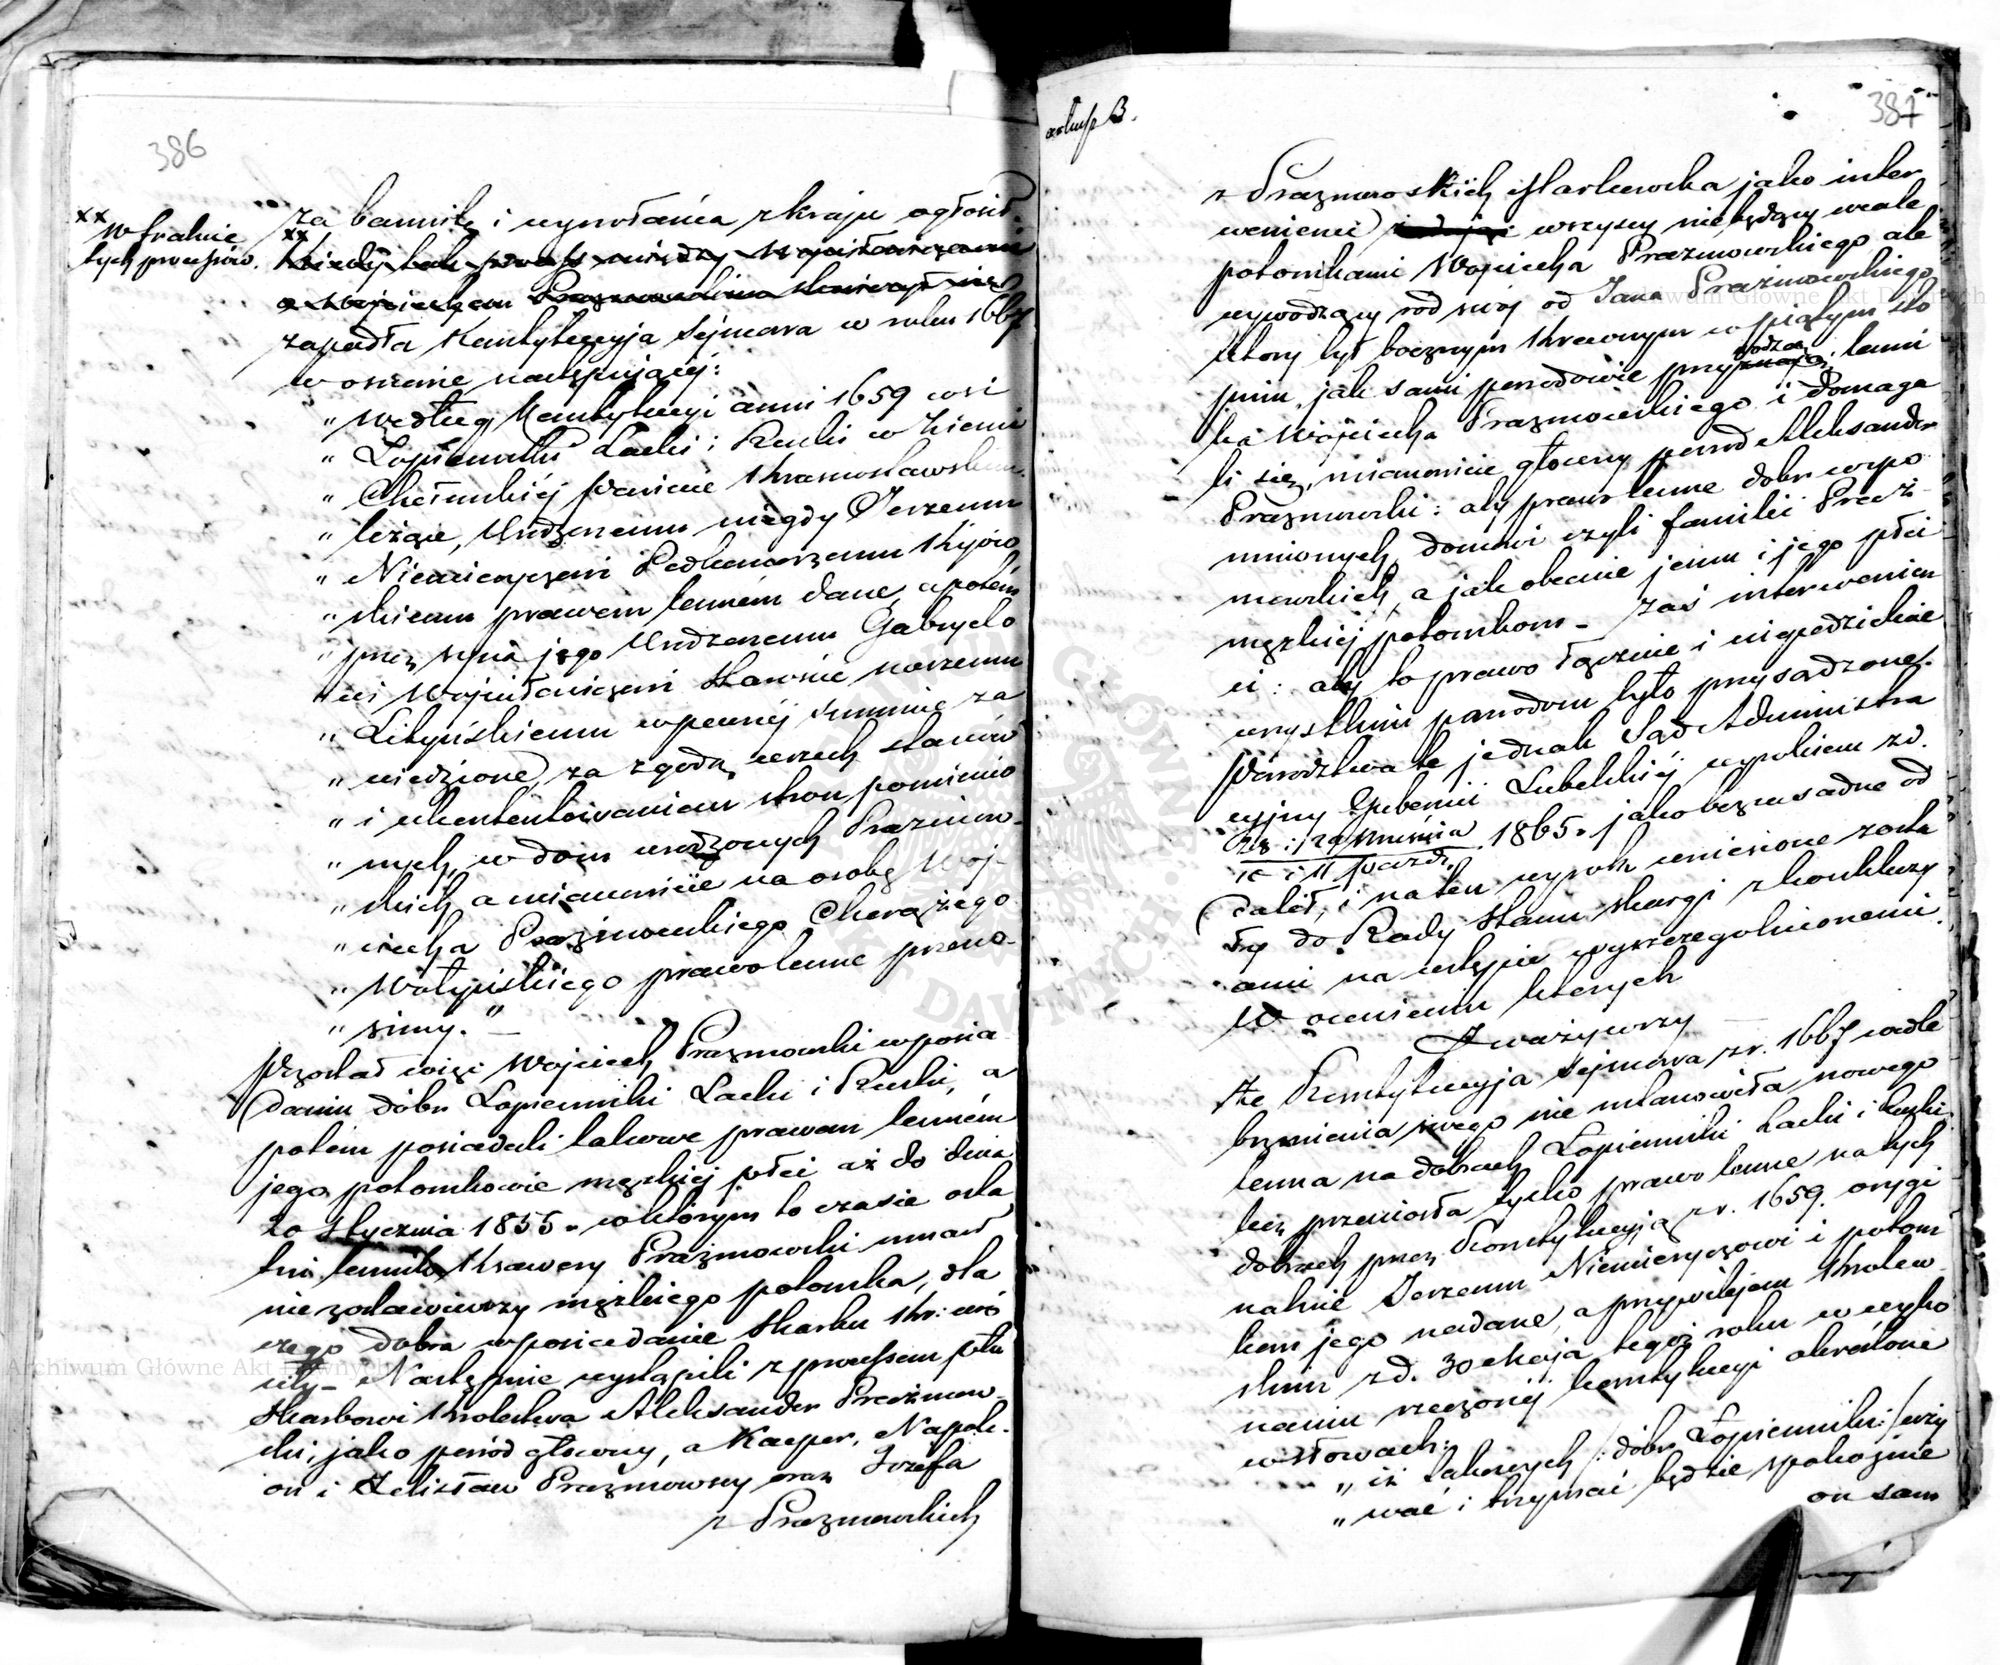 386
xx
w trakcie
tych processów.
za bannitę i wywołańca z kraju ogłosił.
xx Kiedy tak process między Wojniłowiczami
a Wojciechem Prazmowskim
zapadła Konstytucyja Sejmowa w roku 1667
w osnowie następującéj:
„ Według Konstytucyi anni 1659 wsi
„ Łopienniki Lacki i Ruski w Ziemi
„ Chełmskiéj Powiecie Krasnostawskim
„ leżące, Urodzonemu niegdy Jerzemu
„ Niemierzycowi Podkomorzemu Kijow
„ skiemu prawem lenném dane, a potém
„ przez syna jego Urodzonemu Gabryelo
„ wi Wojniłowiczowi Staroście naszemu
„ Lityńskiemu w pewnéj summie za
„ wiedzione, za zgodą wszech stanów
„ i ukontentowaniem stron pomienio
„ nych, w dom urodzonych Prazmow-
„ skich a mianowicie na osobę Woj-
„ ciecha Prazmowskiego Chorążego
„ Wołyńskiego prawo lenne preno-
„ simy.“ —
Pozostał więc Wojciech Prazmowski w posia
daniu dóbr Łopienniki Lacki i Ruski, a
potem posiadali takowe prawem lenném
jego potomkowie męzkiéj płci aż do dnia
20 Stycznia 1855. w którym to czasie osta
tni lennik Xsawery Prażmowski umarł
nie zostawiwszy męzkiego potomka, dla
czego dobra w posiadanie Skarbu Kr: we
szły — Następnie wystąpili z processem prtko
Skarbowi Królestwa Aleksander Prażmow-
ski, jako powód główny, a Kacper, Napole-
on i Zdzisław Prazmowscy oraz Józefa
z Prazmowskich
387
z Prazmowskich Markowska jako inter
wenienci wszyscy niebędący wcale
potomkami Wojciecha Prazmowskiego ale
wywodzący ród swój od Jana Prażmowskiego
który był bocznym krewnym w piątym sto
pniu, jak sami powodowie przy rodza
ka Wojciecha Prazmowskiego i domaga
li się, mianowicie główny powód Aleksander
Prazmowski: aby prawo lenne dóbr wspo
mnionych, domowi czyli familii Praż-
mowskich, a jak obecnie jemu i jego płci
męzkiéj potomkom — zaś interwenien
ci: aby to prawo łącznie i niepodzielnie
wszystkim powodom było przysądzone.
Powództwa te jednak Sąd Administra
cyjny Gubernii Lubelskiéj wyrokiem z d.
28 i 29 Września
10 i 11 Paźdz. 1865. jako bezzasadne od
dalił, i na ten wyrok wniesione zosta
ły do Rady Stanu skargi z konkluzy
ami na wstępie wyszczególnionemi.
W ocenieniu których
Zważywszy —
że Konstytucyja Sejmowa z r. 1667 wedle
brzmienia swego nie ustanowiła nowego
lenna na dobrach Łopienniki Lacki i Ruski
lecz przeniosła tylko prawo lenne na tych
dobrach przez Konstytucyją z r. 1659. orygi
nalnie Jerzemu Niemierzycowi i potom
kom jego nadane, a przywilejem Królew-
skim z d. 30 Maja tegóż roku w wyko
naniu rzeczonéj konstytucyi określone
w słowach:
„ iż takowych /:dóbr Łopienniki:/ uży
„ wać i trzymać będzie spokojnie
on sam